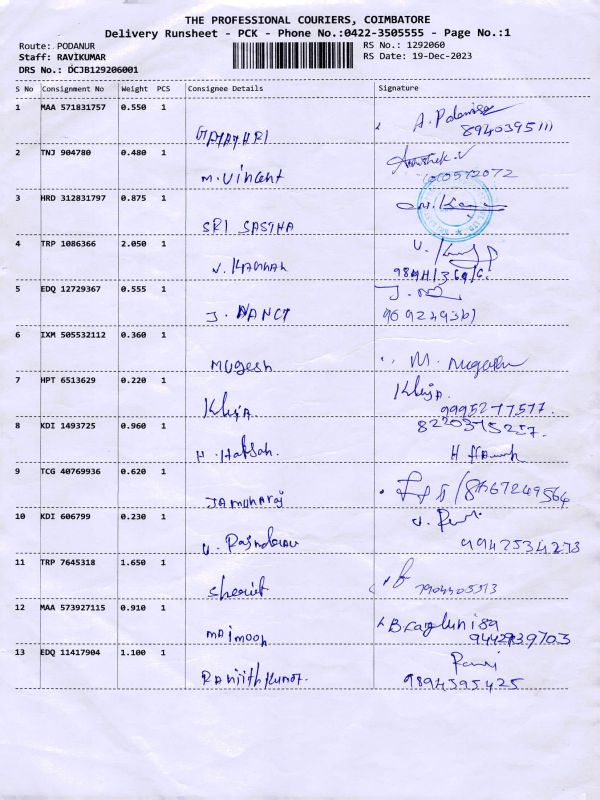 THE PROFESSIONAL COURIERS, COIMBATORE
Delivery Runsheet - PCK - Phone No.:0422-3505555 - Page No.:1
Route: PODANUR RS No.: 1292060
Staff: RAVIKUMAR RS Date: 19-Dec-2023
DRS No.: DCJB129206001
S No Consignment No Weight PCS Consignee Details Signature
1 MAA 571831757 0.550 1
GAYATHRI 8940395111
2 TNJ 904780 0.480 1
M. Vincent
3 HRD 312831797 0.875 1
SRI SASTHA
4 TRP 1086366 2.050 1
V. KANNAN
5 EDQ 12729367 0.555 1
J. NANCY
6 IXM 505532112 0.360 1
Mugesh M.
7 HPT 6513629 0.220 1
Khija. Khija. 9995277577.
8 KDI 1493725 0.960 1 8220315257.
H.
9 TCG 40769936 0.620 1
JAMUNARAJ 8667249564
10 KDI 606799 0.230 1
V. 9942534273
11 TRP 7645318 1.650 1
Sherief
12 MAA 573927115 0.910 1
Maimoon
13 EDQ 11417904 1.100 1
Ranjith Kumar. 9894395425